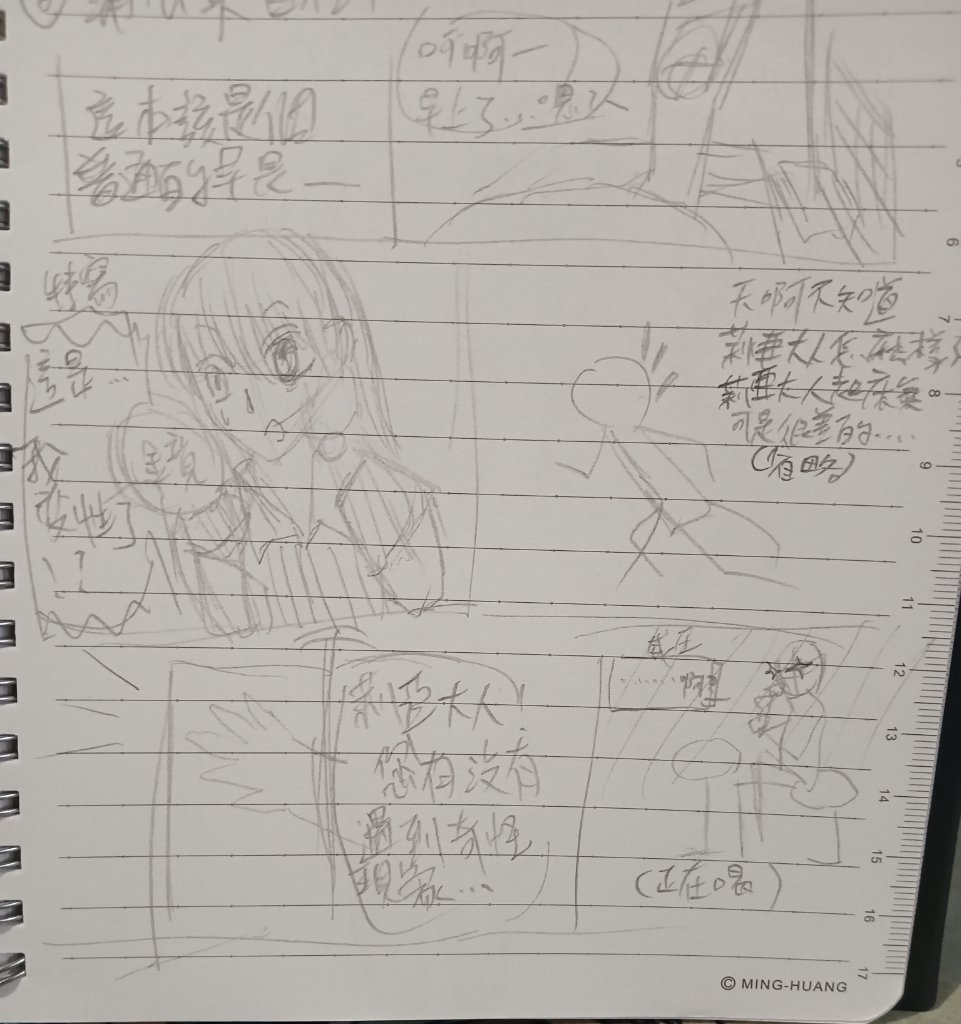 這本該是個
普通的早晨—
呀啊—
早上了...嗯?
特寫
這是...
我
女性了
!?
天啊不知道
莉亞大人怎麼樣了
莉亞大人起床氣
可是很差的.....
(省略)
莉亞大人!
您有沒有
遇到奇怪
現象...
威壓
......啊?
(正在喝)
5
6
7
8
9
10
11
12
13
14
15
16
17
© MING-HUANG